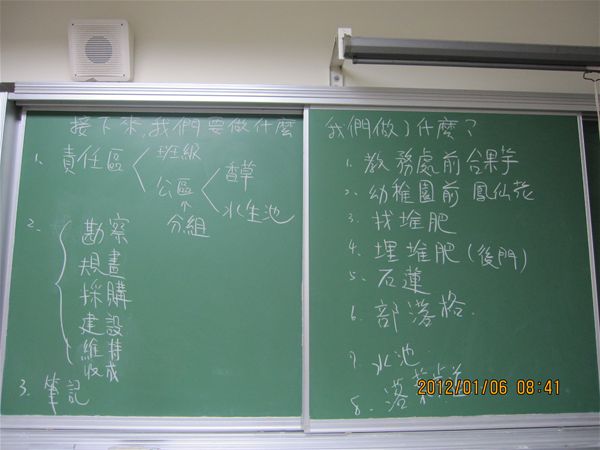 接下來,我們要做什麼
1. 責任區 班級
公區 香草
水生池
↑
分組
2. 勘察
規畫
採購
建設
維持
收成
3. 筆記
我們做了什麼?
1. 教務處前合果芋
2. 幼稚園前鳳仙花
3. 找堆肥
4. 埋堆肥(後門)
5. 石蓮
6. 部落格.
7. 水池
8. 落
2012/01/06 08:41